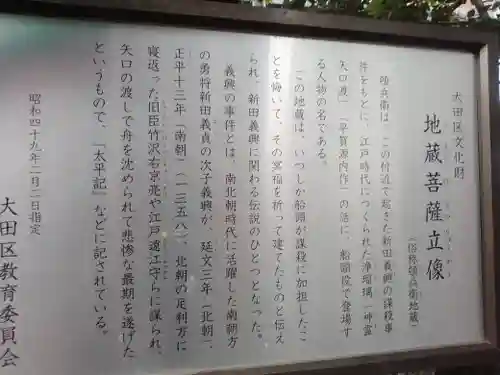 大田区文化財
地蔵菩薩立像
（俗称頓兵衛地蔵）
頓兵衛は、この付近で起きた新田義興の謀殺事
件をもとに、江戸時代につくられた浄瑠璃「神霊
矢口渡」（平賀源内作）の話に、船頭役で登場す
る人物の名である。
この地蔵は、いつしか船頭が謀殺に加担したこ
とを悔いて、その冥福を祈って建てたものと伝え
られ、新田義興に関わる伝説のひとつとなった。
義興の事件とは、南北朝時代に活躍した南朝方
の勇将新田義貞の次子義興が、延文三年（北朝）、
正平十三年（南朝）（一三五八）、北朝の足利方に
寝返った旧臣竹沢右京亮や江戸遠江守らに謀られ、
矢口の渡しで舟を沈められて悲惨な最期を遂げた
というもので、「太平記」などに記されている。
昭和四十九年二月二日指定
大田区教育委員会